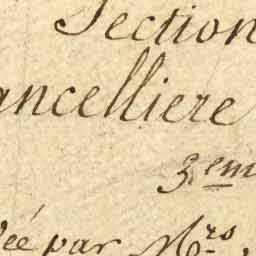 Section
ancelliere
3.em
ée par Mrs.